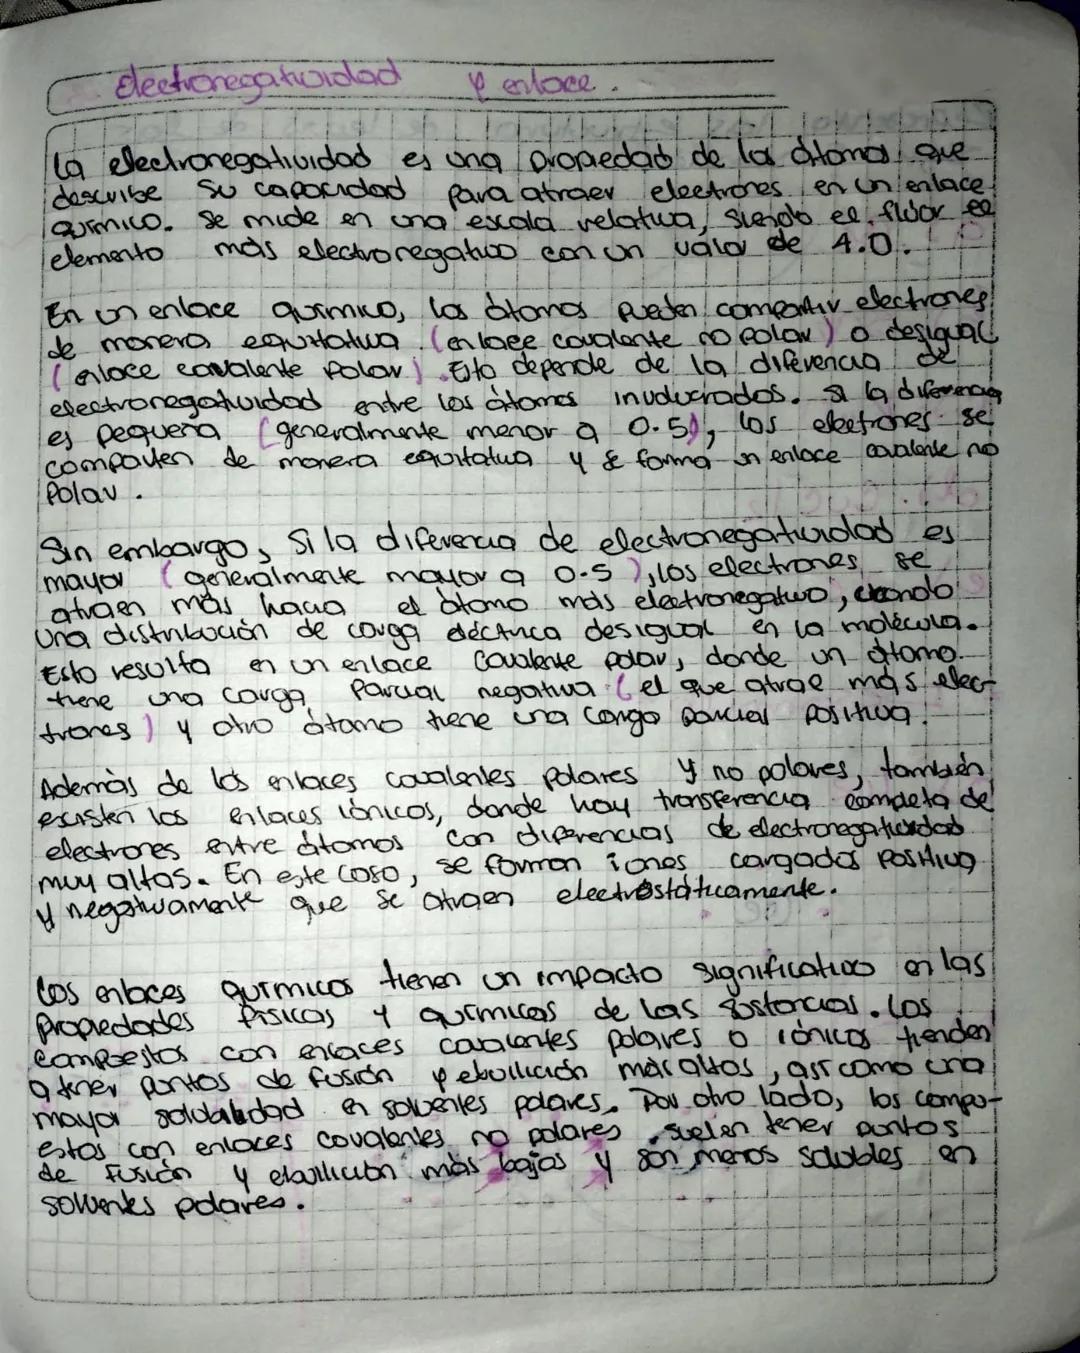 Electronegatividad y enlace.
La electronegatividad es una propiedad de los átomos que
describe su capacidad para atraer electrones en un enlace
químico. Se mide en una escala relativa, siendo el fluor el
elemento más electronegativo con un valor de 4.0.
En un enlace químico, los átomos pueden compartir electrones
de manera equitativa (enlace covalente no polar) o desigual
(enlace covalente polar). Esto depende de la diferencia de
electronegatividad entre los átomos involucrados. Si la diferencia
es pequeña (generalmente menor a 0.5), los electrones se
comparten de manera equitativa y se forma un enlace covalente no
polar.
Sin embargo, Si la diferencia de electronegatividad es
mayor (generalmente mayor a 0.5), los electrones se
atraen más hacia el átomo más electronegativo, creando
una distribución de carga eléctrica desigual en la molécula.
Esto resulta en un enlace covalente polar, donde un átomo
tiene una carga parcial negativa (el que atrae más elec-
trones) y otro átomo tiene una carga parcial positiva.
Además de los enlaces covalentes polares y no polares, también
existen los enlaces iónicos, donde hay transferencia completa de
electrones entre átomos con diferencias de electronegatividad
muy altas. En este caso, se forman iones cargados positiva
y negativamente que se atraen electrostáticamente.
Los enlaces químicos tienen un impacto significativo en las
propiedades físicas y químicas de las sustancias. Los
compuestos con enlaces covalentes polares o iónicos tienden
a tener puntos de fusión y ebullición más altos, así como una
mayor solubilidad en solventes polares. Por otro lado, los compu-
estos con enlaces covalentes no polares suelen tener puntos
de fusión y ebullición más bajos y son menos solubles en
solventes polares.